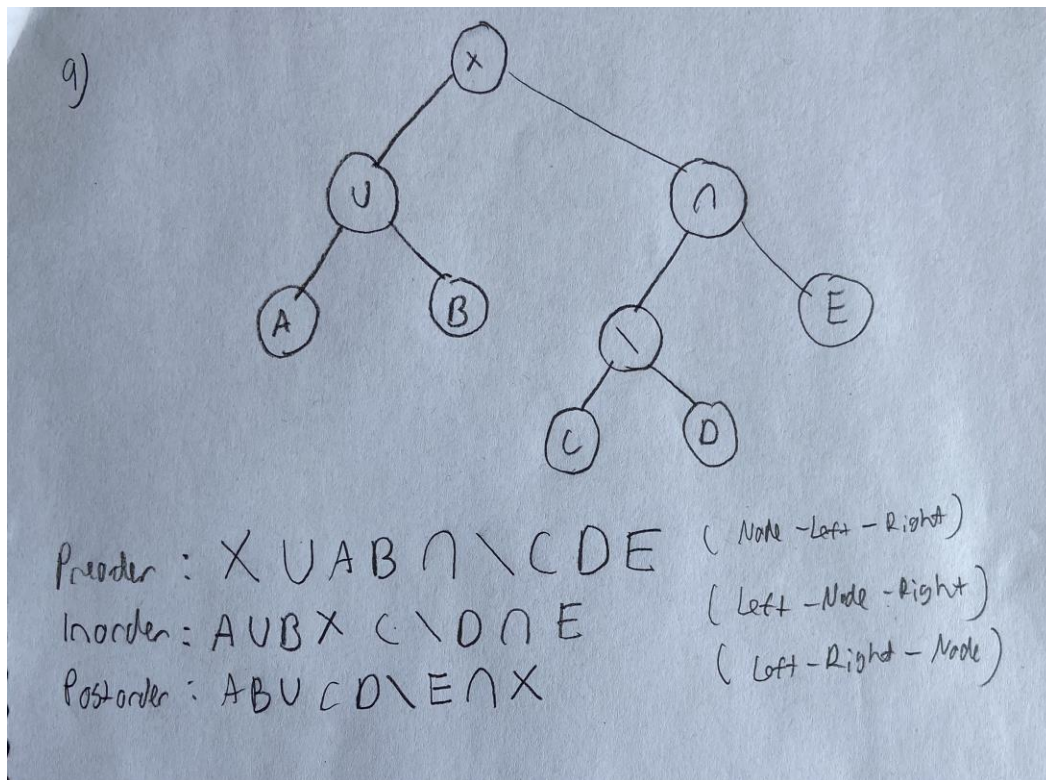 9)
X
U ∩
A B \ E
C D
Preorder : X U A B ∩ \ C D E (Node -Left - Right)
Inorder : A U B X C \ D ∩ E (Left -Node -Right)
Postorder : A B U C D \ E ∩ X (Left -Right - Node)